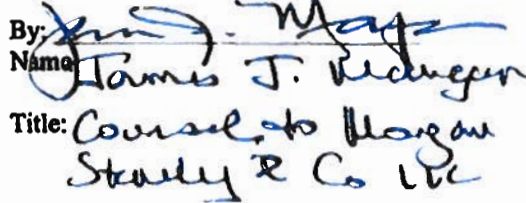 By:
Name James J.
Title: Counsel to Morgan
Stanley & Co LLC